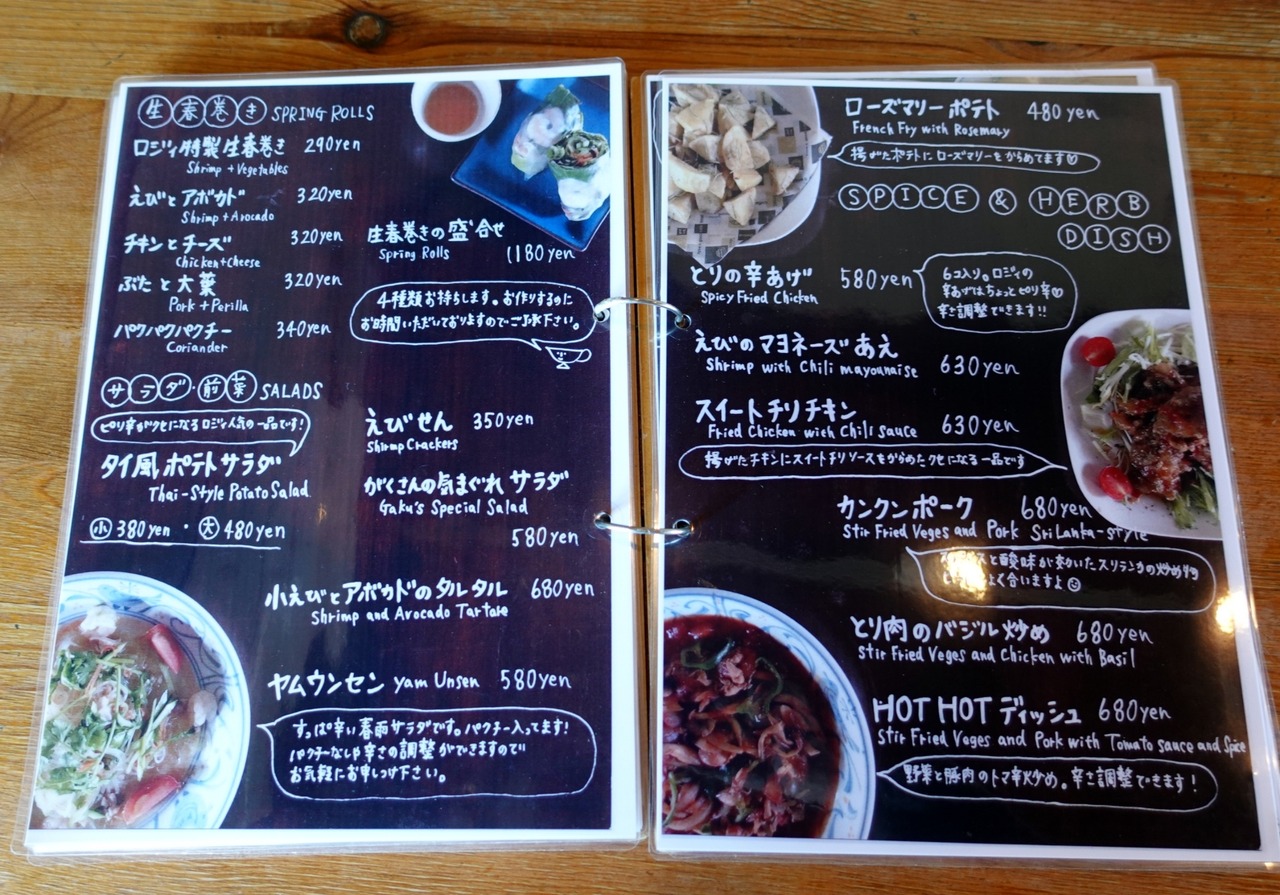 生春巻き SPRING ROLLS
ロジィ特製生春巻き 290yen
Shrimp + Vegetables
えびとアボカド 320yen
Shrimp + Avocado
チキンとチーズ 320yen
Chicken + Cheese
ぶたと大葉 320yen
Pork + Perilla
パクパクパクチー 340yen
Coriander
生春巻きの盛合せ
Spring Rolls 1180yen
4種類お持ちします。お作りするのに
お時間いただいておりますのでご了承下さい。
サラダ・前菜 SALADS
ピリ辛がクセになるロジィ人気の一品です!
タイ風ポテトサラダ
Thai-Style Potato Salad
小 380yen ・ 大 480yen
えびせん 350yen
Shrimp Crackers
がくさんの気まぐれサラダ
Gaku's Special Salad
580yen
小えびとアボカドのタルタル 680yen
Shrimp and Avocado Tartare
ヤムウンセン Yam Unsen 580yen
すっぱ辛い春雨サラダです。パクチー入ってます!
パクチーなしや辛さの調整ができますので
お気軽にお申しつけ下さい。
ローズマリーポテト 480yen
French Fry with Rosemary
揚げたポテトにローズマリーをからめてます♡
SPICE & HERB
DISH
とりの辛あげ 580yen
Spicy Fried Chicken
6コ入り。ロジィの
辛あげはちょっとピリ辛♡
辛さ調整できます!!
えびのマヨネーズあえ
Shrimp with Chili mayounaise 630yen
スイートチリチキン
Fried Chicken with Chili sauce 630yen
揚げたチキンにスイートチリソースをからめたクセになる一品です
カンクンポーク 680yen
Stir Fried Veges and Pork SriLanka-style
と酸味が効いたスリランカの炒め物
よく合いますよ☺
とり肉のバジル炒め 680yen
Stir Fried Veges and Chicken with Basil
HOT HOT ディッシュ 680yen
Stir Fried Veges and Pork with Tomato sauce and Spice
野菜と豚肉のトマ辛炒め。辛さ調整できます!